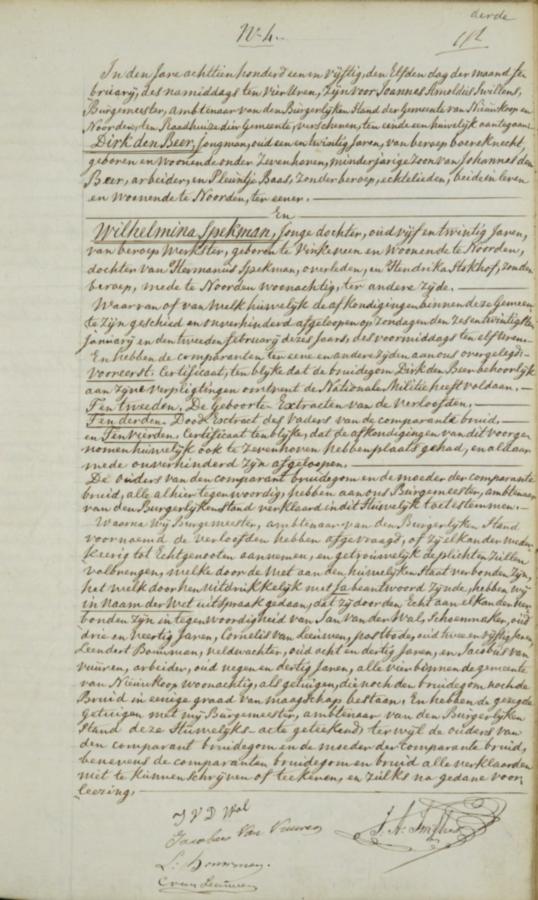 derde
N. 4.
In den Jare achttien honderd een en vijftig, den Elfden dag der maand fe
bruarij, des namiddags ten vier Uren, zijn voor Joannes Arnoldus
Burgemeester, ambtenaar van den Burgerlijken Stand der Gemeente van Nieuwkoop en
Noorden, ten Raadhuize dier Gemeente, verschenen, ten einde een huwelijk aantegaan:
Dirk den Beer, Jongman, oud een en twintig Jaren, van beroep boereknecht,
geboren en Woonende onder Zevenhoven, minderjarige Zoon van Johannes den
Beer, arbeider, en Pleuntje Baas, Zonder beroep, echtelieden, beide in leven
en woonende te Noorden, ter eener.
En
Wilhelmina Spekman, Jonge dochter, oud vijf en twintig Jaren,
van beroep Werkster, geboren te Vinkeveen en Woonende te Noorden,
dochter van Hermanus Spekman, overleden, en Hendrika Stokhof, zonder
beroep, mede te Noorden woonachtig, ter andere zijde.
Waarvan of van welk huwelijk de afkondigingen binnen deze Gemeen
te zijn geschied en onverhinderd afgeloopen op Zondagen den Zesentwintigsten
Januarij en den tweeden februarij dezes Jaars, des voormiddags ten elf Uren.
En hebben de comparanten ter eene en andere zijden aan ons overgelegd:
Voor eerst. Certificaat, ten blijke dat de bruidegom Dirk den Beer behoorlijk
aan zijne verpligtingen omtrent de Nationale Militie heeft voldaan.
Ten tweeden. De Geboorte-Extracten van de Verloofden.
Ten derden. Dood Extract des vaders van de comparante bruid.
en Ten vierden. Certificaat ten blijke, dat de afkondigingen van dit voorge-
nomen huwelijk ook te Zevenhoven hebben plaats gehad, en aldaar
mede onverhinderd zijn afgeloopen.
De ouders van den comparant bruidegom en de moeder der comparante
bruid, alle alhier tegenwoordig, hebben aan ons Burgemeester, ambtenaar
van den Burgerlijken Stand verklaard in dit Huwelijk toetestemmen.
Waarna Wij Burgemeester, ambtenaar van den Burgerlijken Stand
voornoemd de Verloofden hebben afgevraagd, of zij elkander weder-
keerig tot Echtgenooten aannemen, en getrouwelijk de plichten zullen
volbrengen, welke door de Wet aan den huwelijken Staat verbonden zijn,
het welk door hen uitdrukkelijk met Ja beantwoord zijnde, hebben wij
in Naam der Wet uitspraak gedaan, dat zij door den Echt aan elkander ver
bonden zijn in tegenwoordigheid van Jan van der Wal, Schoenmaker, oud
drie en veertig Jaren, Cornelis van Leeuwen, postbode, oud twee en vijftig Jaren,
Leendert Bouwman, veldwachter, oud acht en dertig Jaren, en Jacobus van
Vuuren, arbeider, oud negen en dertig Jaren, alle vier binnen de gemeente
van Nieuwkoop woonachtig, als getuigen, die noch den bruidegom noch de
Bruid in eenige graad van maagschap bestaan, En hebben de gezegde
getuigen met mij Burgemeester, ambtenaar van den Burgerlijken
Stand deze Huwelijks-acte geteekend, terwijl de ouders van
den comparant bruidegom en de moeder der Comparante bruid,
benevens de comparanten bruidegom en bruid alle verklaarden
niet te kunnen schrijven of teekenen, en zulks na gedane voor-
leezing.
J V D Wal
Jacobus Van Vuuren
L: Bouwman.
C van Leeuwen